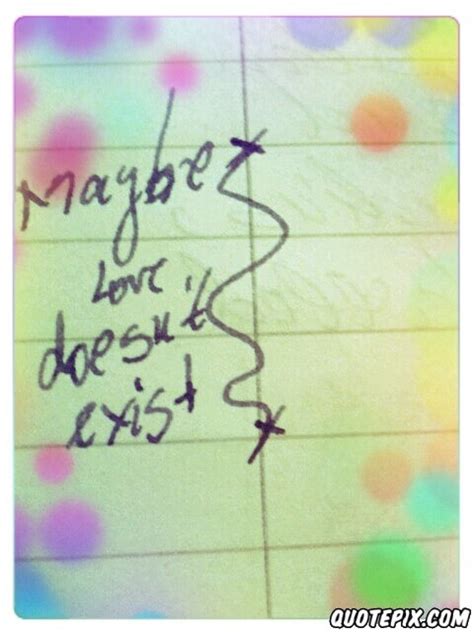 Maybe
Love
doesn't
exist
QUOTEPIX.COM